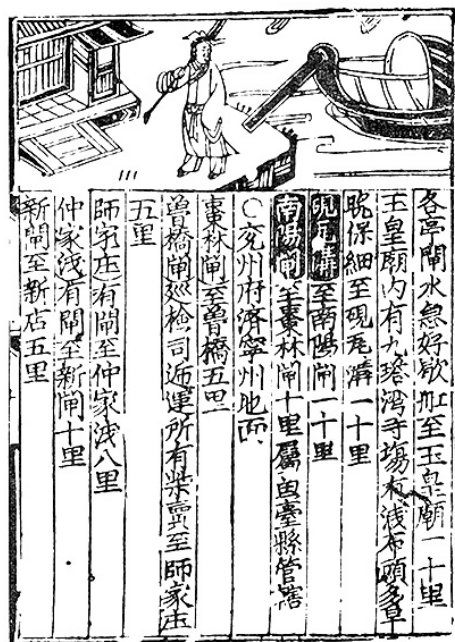 各亭閘水急好歇舡至玉皇廟一十里
玉皇廟内有九湾寺塲有浅布頭多草
保細至硯瓦溝一十里
硯瓦溝至南陽閘一十里
南陽閘至棗林閘十里屬魚臺縣管轄
○兖州府濟寧州地面
棗林閘至魯橋五里
魯橋閘巡檢司逓運所有柴賣至師家庄
五里
師家庄有閘至仲家浅八里
仲家浅有閘至新閘十里
新閘至新店五里